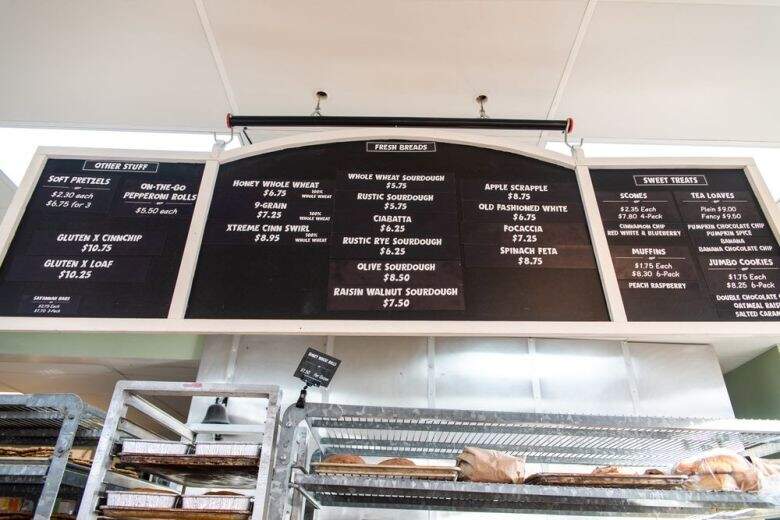 OTHER STUFF
SOFT PRETZELS
$2.30 each
or
$6.75 for 3
ON-THE-GO
PEPPERONI ROLLS
$5.50 each
GLUTEN X CINNCHIP
$10.75
GLUTEN X LOAF
$10.25
SAVANNAH BARS
FRESH BREADS
HONEY WHOLE WHEAT
$6.75
100%
WHOLE WHEAT
9-GRAIN
$7.25
100%
WHOLE WHEAT
XTREME CINN SWIRL
$8.95
100%
WHOLE WHEAT
WHOLE WHEAT SOURDOUGH
$5.75
RUSTIC SOURDOUGH
$5.75
CIABATTA
$6.25
RUSTIC RYE SOURDOUGH
$6.25
OLIVE SOURDOUGH
$8.50
RAISIN WALNUT SOURDOUGH
$7.50
APPLE SCRAPPLE
$8.75
OLD FASHIONED WHITE
$6.75
FOCACCIA
$7.25
SPINACH FETA
$8.75
SWEET TREATS
SCONES
or
$2.35 Each
$7.80 4-Pack
CINNAMON CHIP
RED WHITE & BLUEBERRY
MUFFINS
or
$1.75 Each
$8.30 6-Pack
PEACH RASPBERRY
TEA LOAVES
or
Plain $9.00
Fancy $9.50
PUMPKIN CHOCOLATE CHIP
PUMPKIN SPICE
BANANA
BANANA CHOCOLATE CHIP
JUMBO COOKIES
or
$1.75 Each
$8.25 6-Pack
DOUBLE CHOCOLATE
OATMEAL RAIS
SALTED CARAM